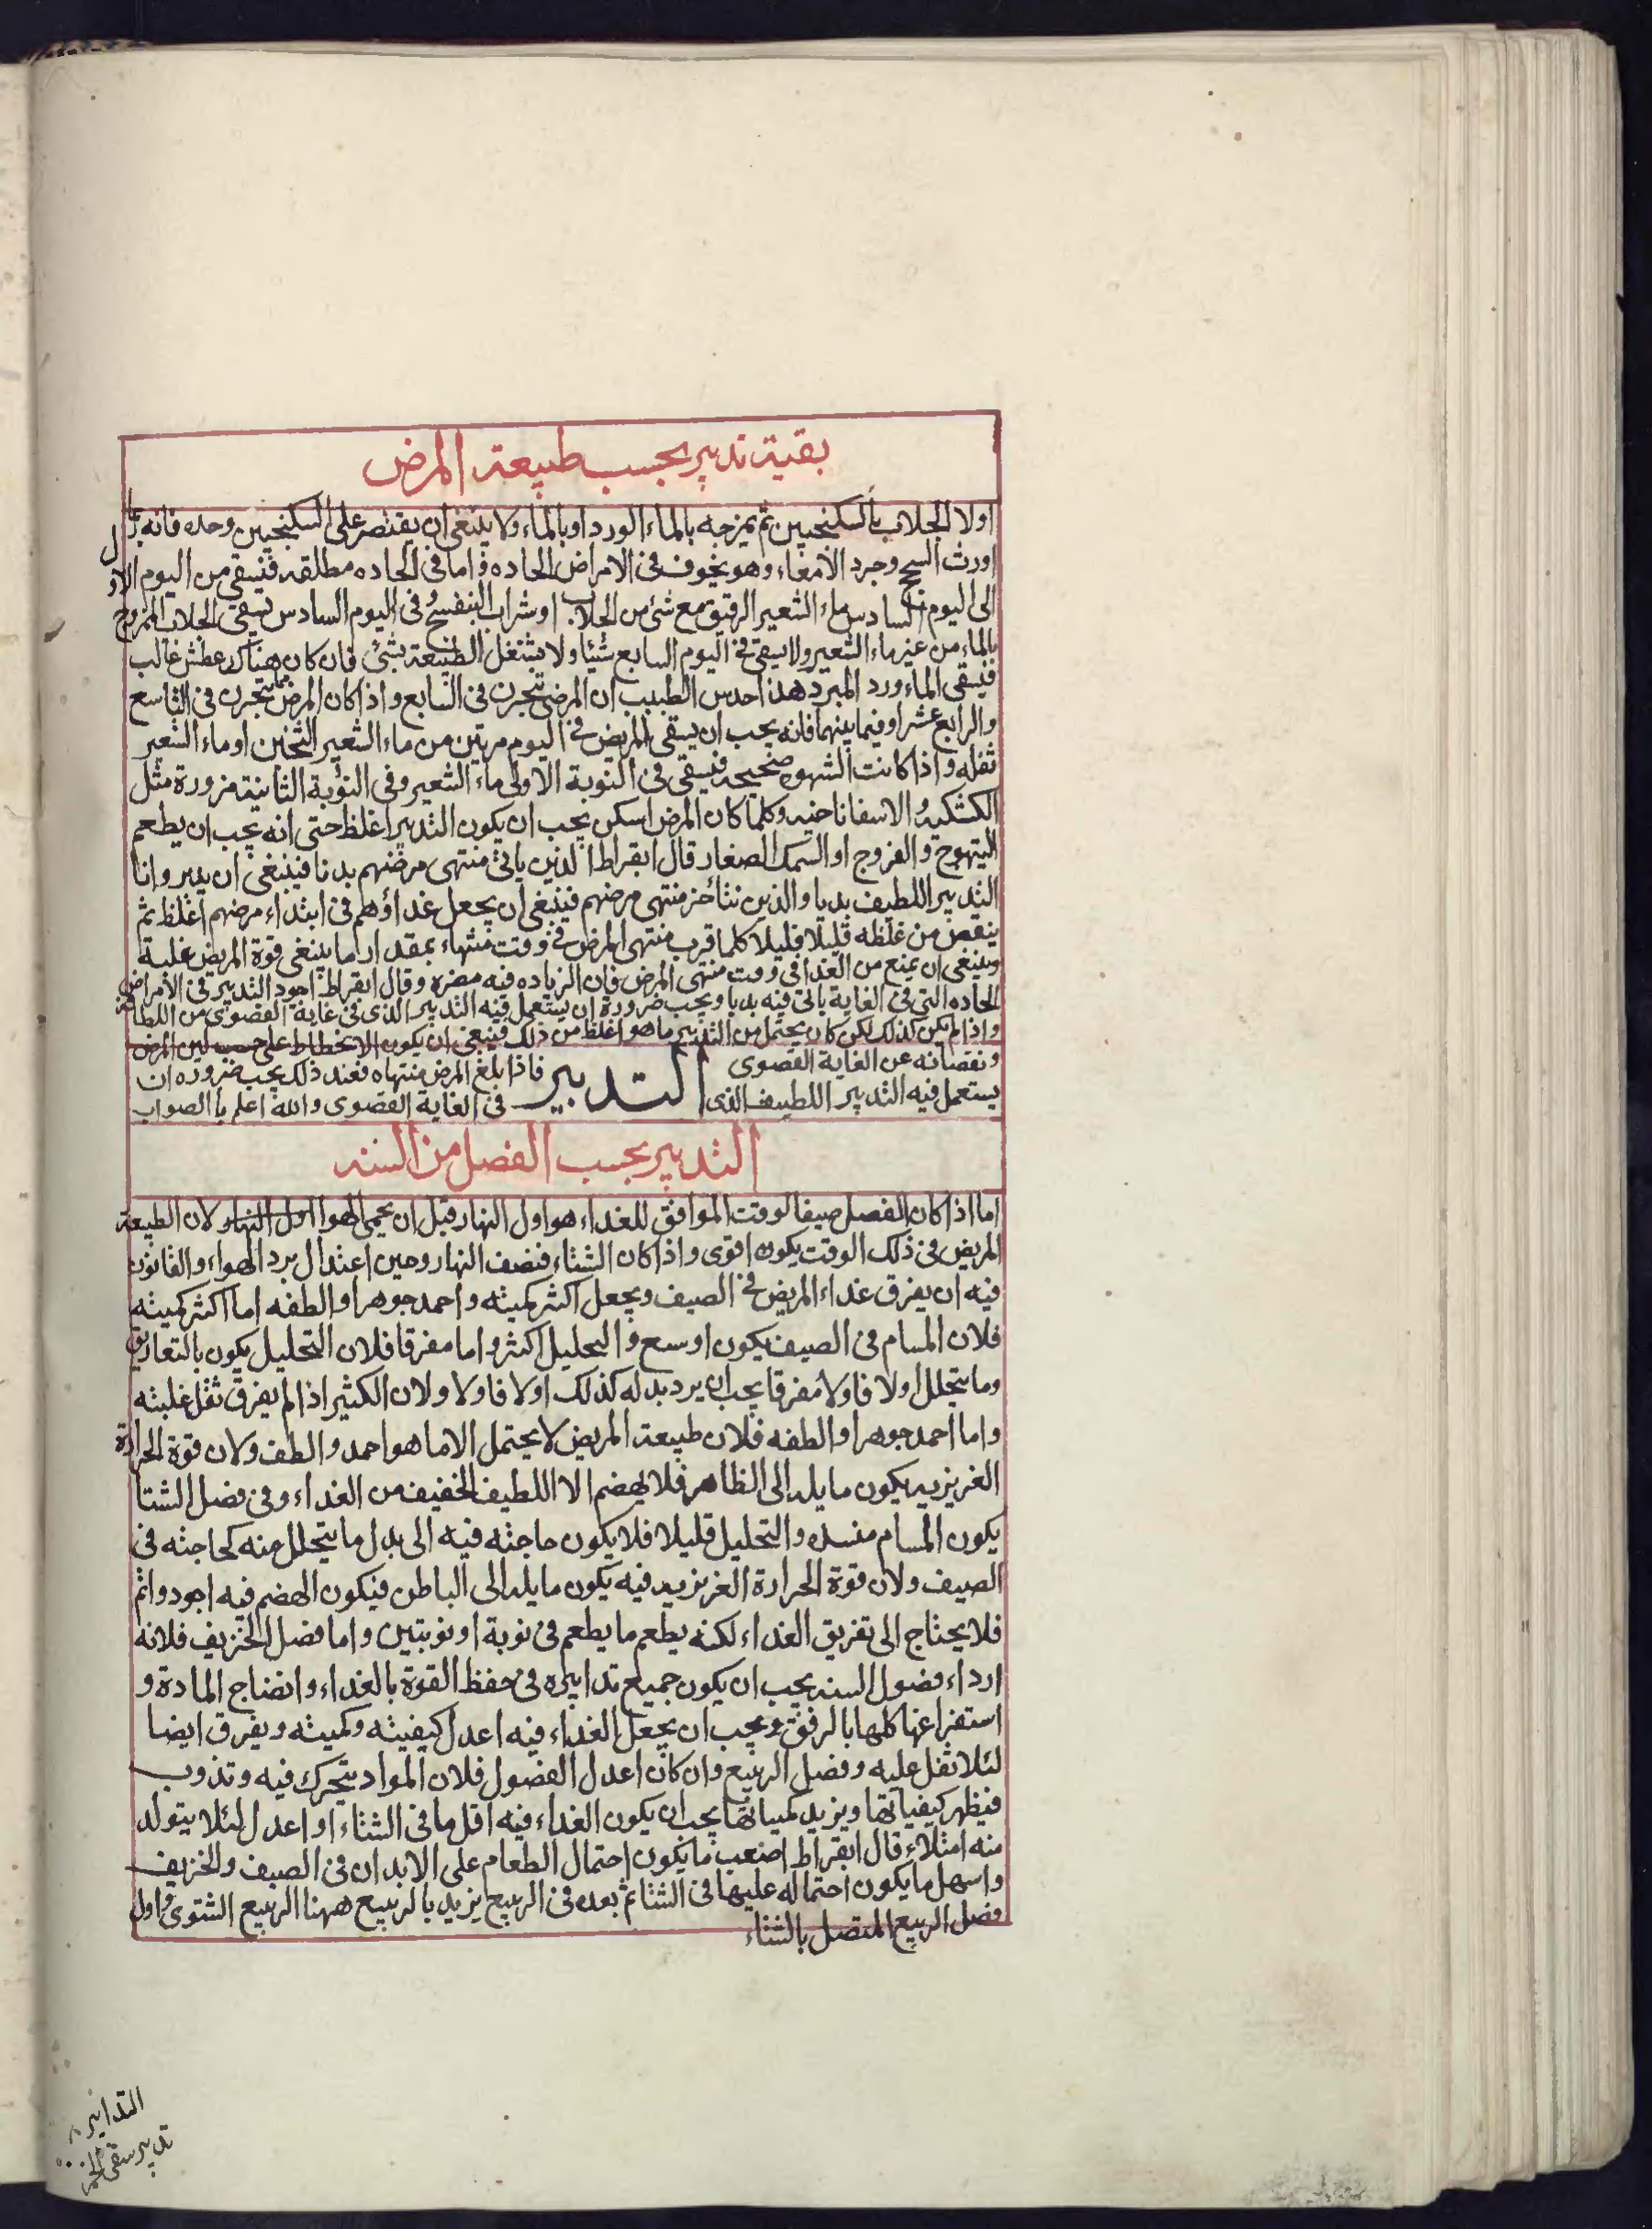 بقية تدبير بحسب طبيعة المرض
اولا الجلاب بالسكنجبين ثم يمزجه بالماء الورد او بالماء ولا ينبغى ان يقتصر على السكنجبين وحده فانه
اورث السحج وجرد الامعاء وهو مخوف فى الامراض الحاده واما فى الحاده مطلقه فيسقى من اليوم الاول
الى اليوم السادس ماء الشعير الرقيق مع شئ من الجلاب او شراب البنفسج وفى اليوم السادس يسقى الجلاب الممزوج
بالماء من غير ماء الشعير ولا يسقى فى اليوم السابع شيئا ولا يشتغل الطبيعة بشئ فان كان هناك عطش غالب
فيسقى الماء ورد المبرد هذا احدس الطبيب ان المرض يتجرن فى السابع واذا كان المرض مما يتجرن فى التاسع
والرابع عشر او فيما بينهما فانه يجب ان يسقى المريض فى اليوم مرتين من ماء الشعير الثخين او ماء الشعير
ثفله واذا كانت الشهوه صحيحه فيسقى فى النوبة الاولى ماء الشعير وفى النوبة الثانية مزورة مثل
الكشكيه الاسفاناخيه وكلما كان المرض اسكن يجب ان يكون التدبير اغلظ حتى انه يجب ان يطعم
التيهوج والفروج او السمك الصغار قال ابقراط الذين ياتى منتهى مرضهم بدنا فينبغى ان يدبروا انا
التدبير اللطيف بديا والذين تتأخر منتهى مرضهم فينبغى ان يجعل غداؤهم فى ابتداء مرضهم اغلظ ثم
ينقص من غلظه قليلا قليلا كلما قرب منتهى المرض فى وقت منتهاء بمقدار ما ينبغى قوة المريض علية
وينبغى ان يمنع من الغدا فى وقت منتهى المرض فان الزياده فيه مضره وقال ابقراط اجود التدبير فى الامراض
الحاده التى فى الغاية ياتى فيه بديا ويجب ضرورة ان يستعمل فيه التدبير الذى فى غاية القصوى من اللطافة
واذا لم يكن كذلك لكن كان يحتمل من التدبير ما هو اغلظ من ذلك فينبغى ان يكون الانحطاط على حسب لين المرض
ونقصانه عن الغاية القصوى التدبير فاذا بلغ المرض منتهاه فعند ذلك يجب ضروره ان
يستعمل فيه التدبير اللطيف الذى فى الغاية القصوى والله اعلم بالصواب
التدبير بحسب الفصل من السنه
اما اذا كان الفصل صيفا لوقت الموافق للغداء هو اول النهار قبل ان يحمى الهوا اول النهار ولان الطبيعة
المريض فى ذلك الوقت يكون اقوى واذا كان الشتاء فنصف النهار وحين اعتدال برد الهواء والقانون
فيه ان يفرق غداء المريض فى الصيف ويجعل اكثر كميته واحمد جوهرا والطفه اما اكثر كميته
فلان المسام فى الصيف يكون اوسع والتحليل اكثر واما مفرقا فلان التحليل يكون بالتعاريق
وما يتحلل اولا فاولا مفرقا يجب ان يرد بدله كذلك اولا فاولا ولان الكثير اذا لم يفرق ثقل غلبته
واما احمد جوهرا والطفه فلان طبيعة المريض لا يحتمل الا ما هو احمد والطف ولان قوة الحرارة
الغريزيه يكون مايله الى الظاهر فلا يهضم الا اللطيف الخفيف من الغداء وفى فصل الشتا
يكون المسام منسده والتحليل قليلا فلا يكون حاجته فيه الى بدل ما يتحلل منه كحاجته فى
الصيف ولان قوة الحرارة الغريزيه فيه يكون مايله الى الباطن فيكون الهضم فيه اجود واتم
فلا يحتاج الى تفريق الغداء لكنه يطعم ما يطعم فى نوبة او نوبتين واما فصل الخريف فلانه
ارداء فصول السنه يجب ان يكون جميع تدابيره فى حفظ القوة بالغداء وانضاج المادة و
استفراغها كلها بالرفق ويجب ان يجعل الغداء فيه اعدل كيفيته وكميته ويفرق ايضا
لئلا ثقل عليه وفصل الربيع وان كان اعدل الفصول فلان المواد يتحرك فيه وتذوب
فيظهر كيفياتها ويزيد كمياتها يجب ان يكون الغداء فيه اقل ما فى الشتاء او اعدل لئلا يتولد
منه امتلاء قال ابقراط اصعب ما يكون احتمال الطعام على الابدان فى الصيف والخريف
واسهل ما يكون احتماله عليها فى الشتا ثم بعده فى الربيع يزيد بالربيع ههنا الربيع الشتوى واول
فصل الربيع المتصل بالشتاء
التدابير
تدبير سقى الخمر